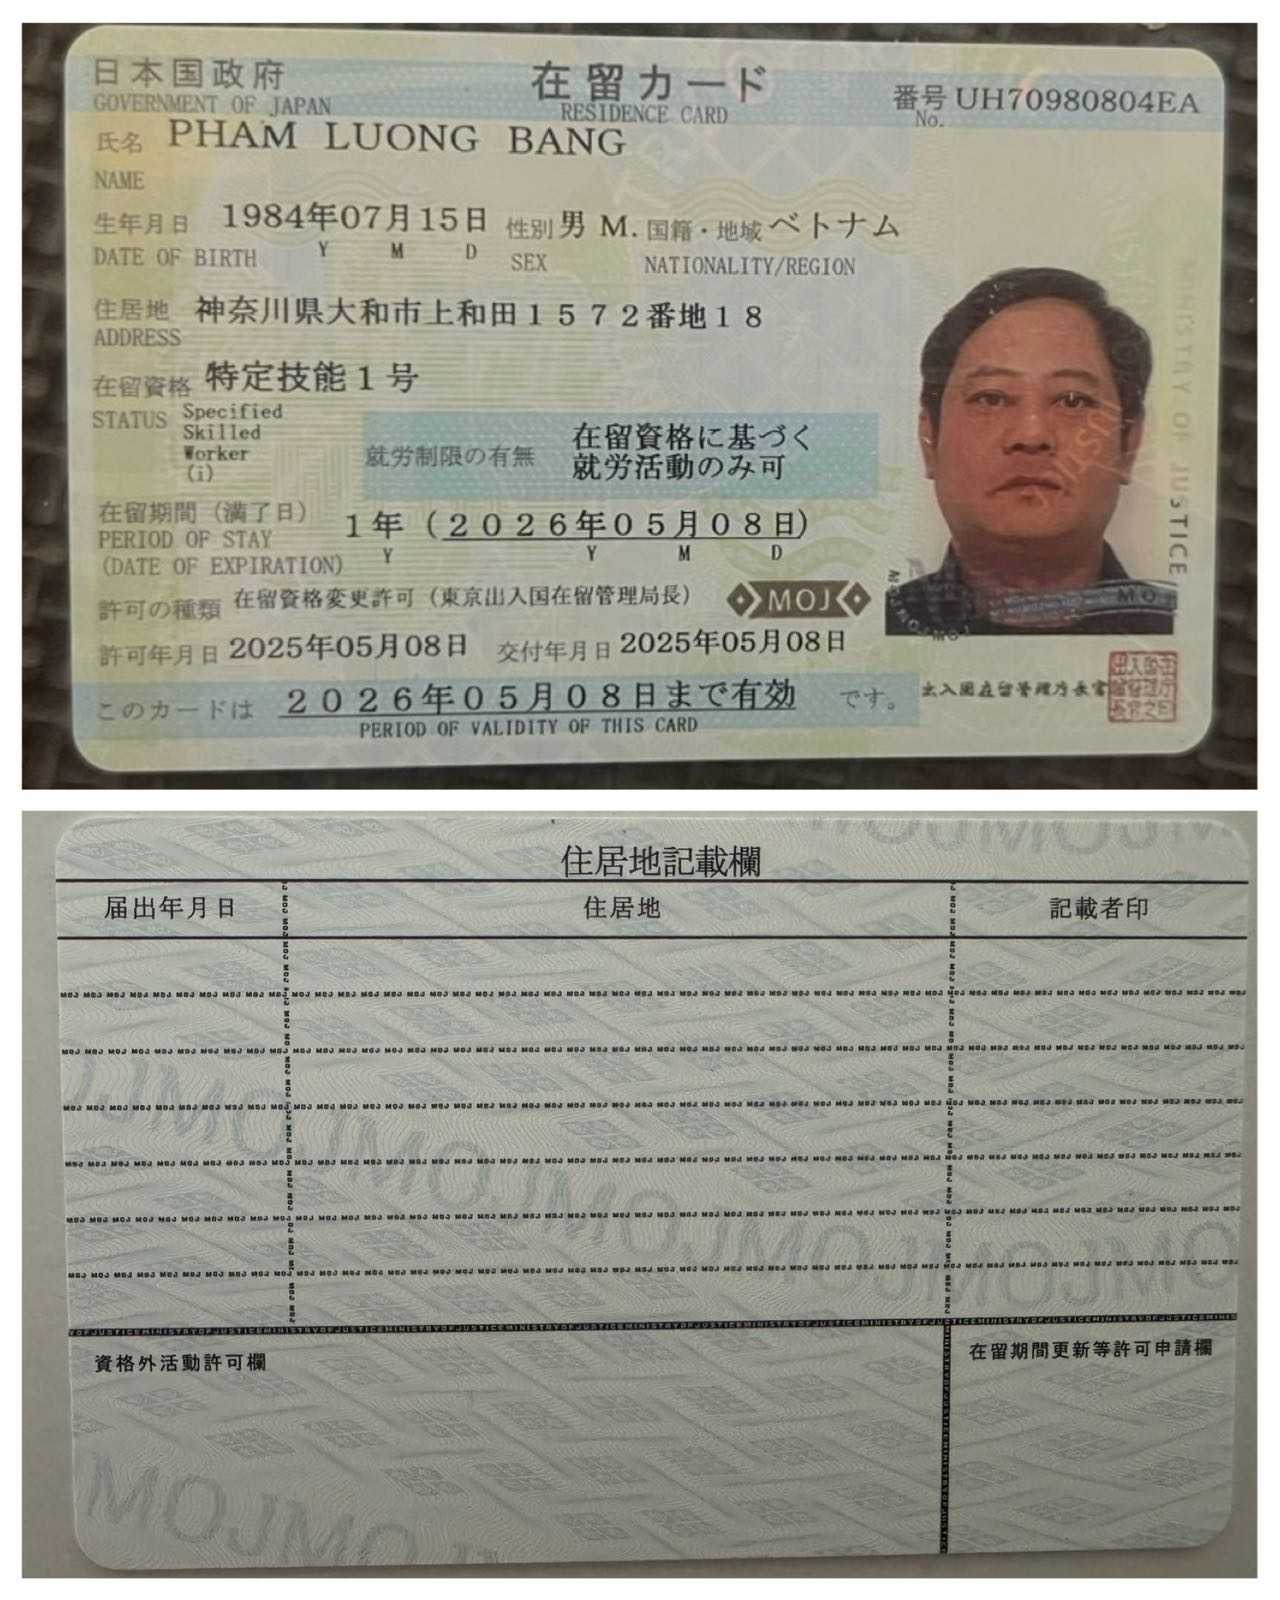 日本国政府 在留カード 番号 UH70980804EA
GOVERNMENT OF JAPAN RESIDENCE CARD No.
氏名 PHAM LUONG BANG
NAME
生年月日 1984年07月15日 性別 男 M. 国籍・地域 ベトナム
DATE OF BIRTH Y M D SEX NATIONALITY/REGION
住居地 神奈川県大和市上和田1572番地18
ADDRESS
在留資格 特定技能1号
STATUS Specified
Skilled
Worker
(i)
就労制限の有無 在留資格に基づく
就労活動のみ可
在留期間(満了日) 1年(2026年05月08日)
PERIOD OF STAY Y Y M D
(DATE OF EXPIRATION)
許可の種類 在留資格変更許可(東京出入国在留管理局長) MOJ
許可年月日 2025年05月08日 交付年月日 2025年05月08日
このカードは 2026年05月08日まで有効 です。
PERIOD OF VALIDITY OF THIS CARD
出入国在留管理庁長官
MINISTRY OF JUSTICE
住居地記載欄
届出年月日 住居地 記載者印
資格外活動許可欄 在留期間更新等許可申請欄
MOJMOJ